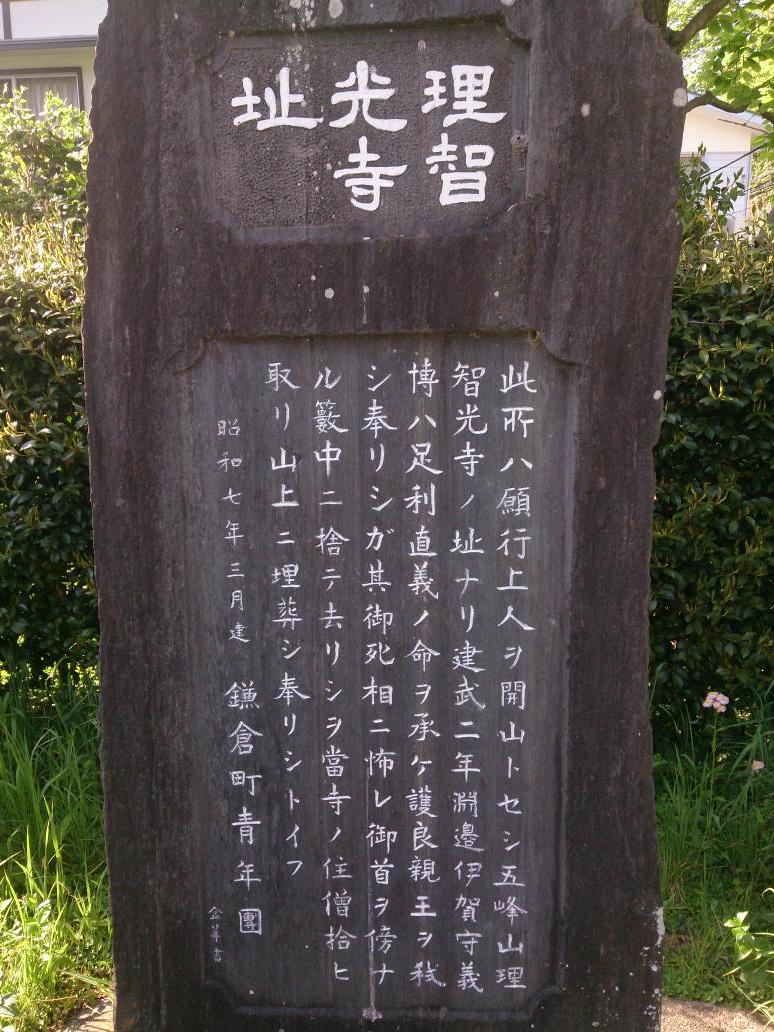 理智
光寺
址
此所ハ願行上人ヲ開山トセシ五峰山理
智光寺ノ址ナリ建武二年淵邊伊賀守義
博ハ足利直義ノ命ヲ承ケ護良親王ヲ弑
シ奉リシガ其御死相ニ怖レ御首ヲ傍ナ
ル籔中ニ捨テ去リシヲ當寺ノ住僧拾ヒ
取リ山上ニ埋葬シ奉リシトイフ
昭和七年三月建 鎌倉町青年團